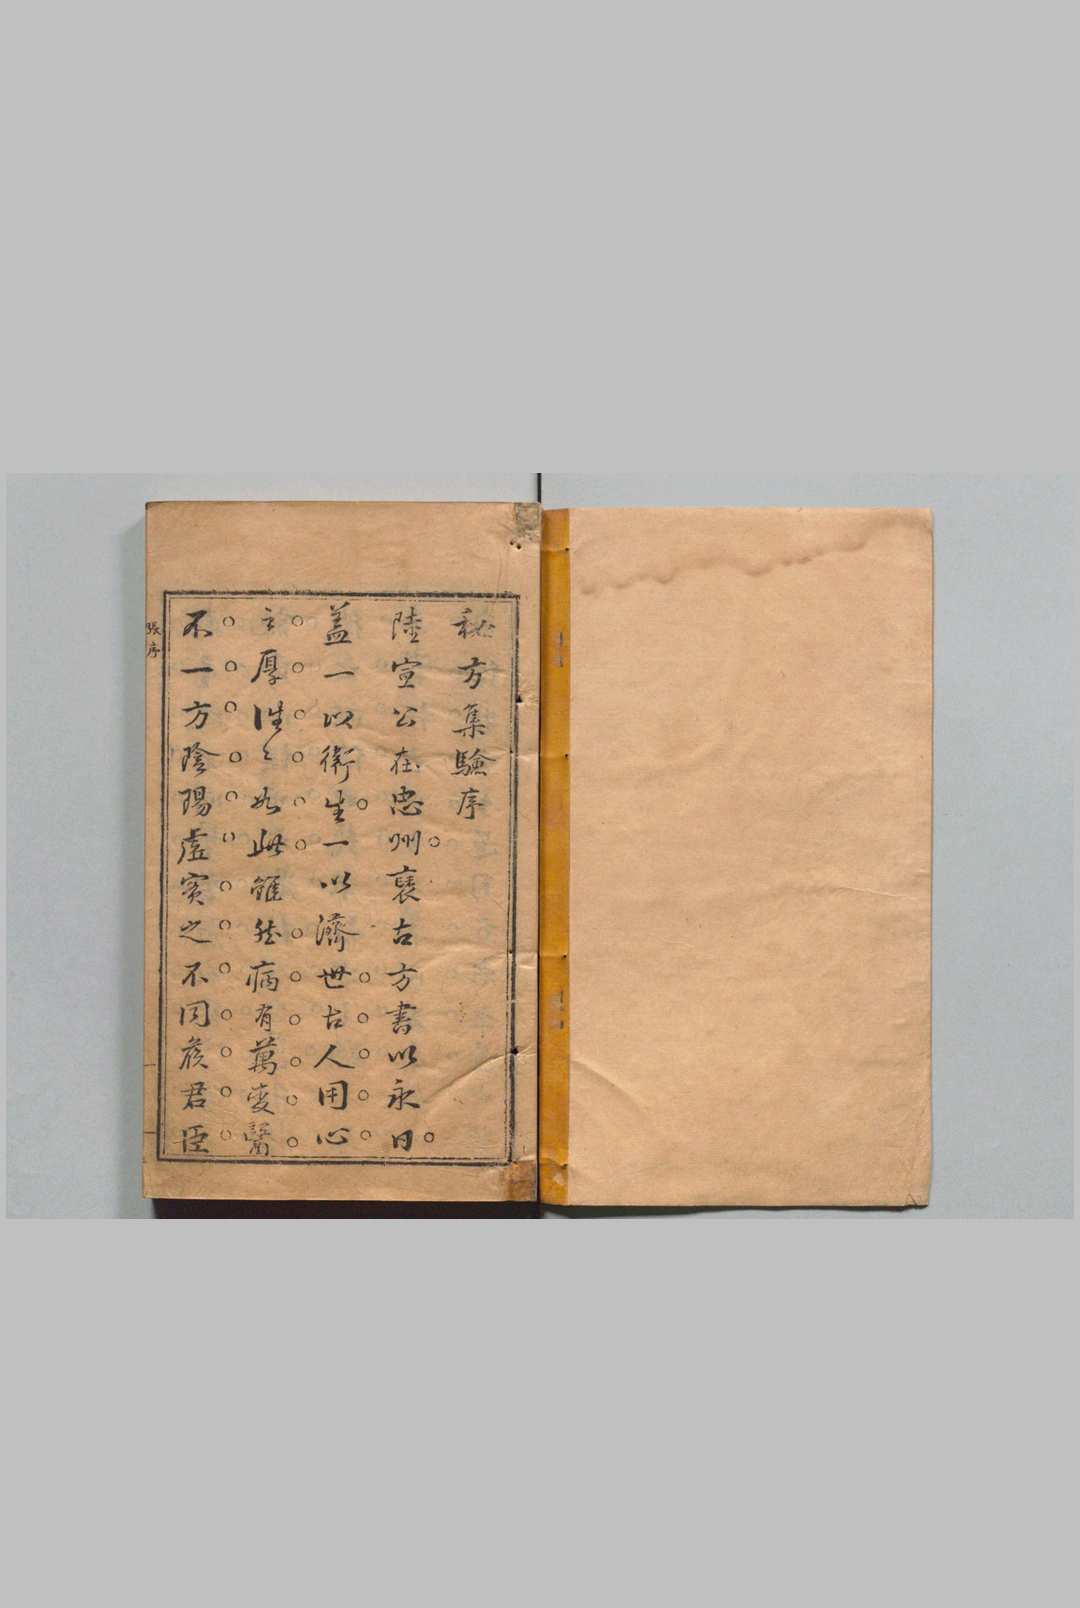 秘方集驗序
陸宣公在忠州裒古方書以永日
蓋一以衛生一以濟世古人用心
之厚徃〻如此雖然病有萬變醫
不一方陰陽虛實之不同候君臣
張序